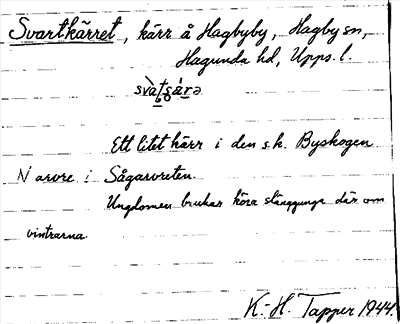 Svartkärret, kärr å Hagbyby, Hagby sn,
Hagunda hd, Upps. l.
Ett litet kärr i den s.k. Byskogen
N arvre i Sågarvreten.
Ungdomen brukar köra stånggunga där om
vintrarna
K.-H. Tapper 1944.